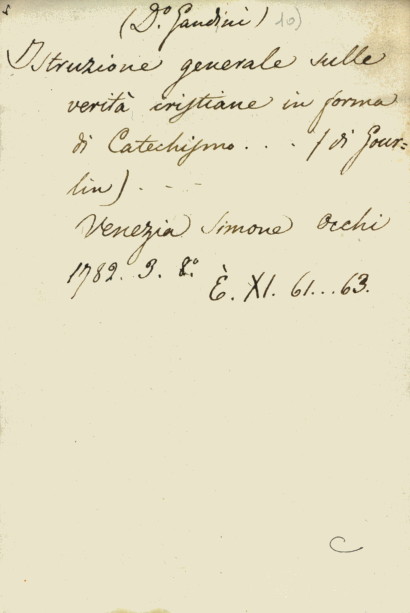 (D.º Gandini) 10)
Istruzione generale sulle
verità cristiane in forma
di Catechismo . . . / di Gour=
lin) . - -
Venezia Simone Occhi
1782. 3. 8.º
È. XI. 61...63.